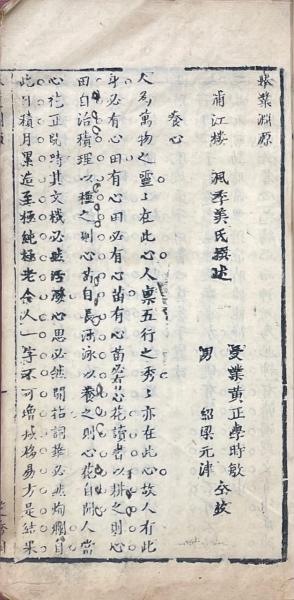 業淵源
浦江樓 季美氏撰述
受業黃正學時敏
男 紹梁元津 仝敬
養心
人為萬物之靈〻在此心人稟五行之秀〻亦在此心故人有此
身必有心田有心田必有心苗有心苗必有心花讀者以耕之則心
田自治積理以種之則心苗自長涵泳以養之則心花自開人當
心花正開時其文機必然活潑心思必然開拓詞華必然絢爛自
此日積月累造至極純極老令人一等不可增減移易方是結果